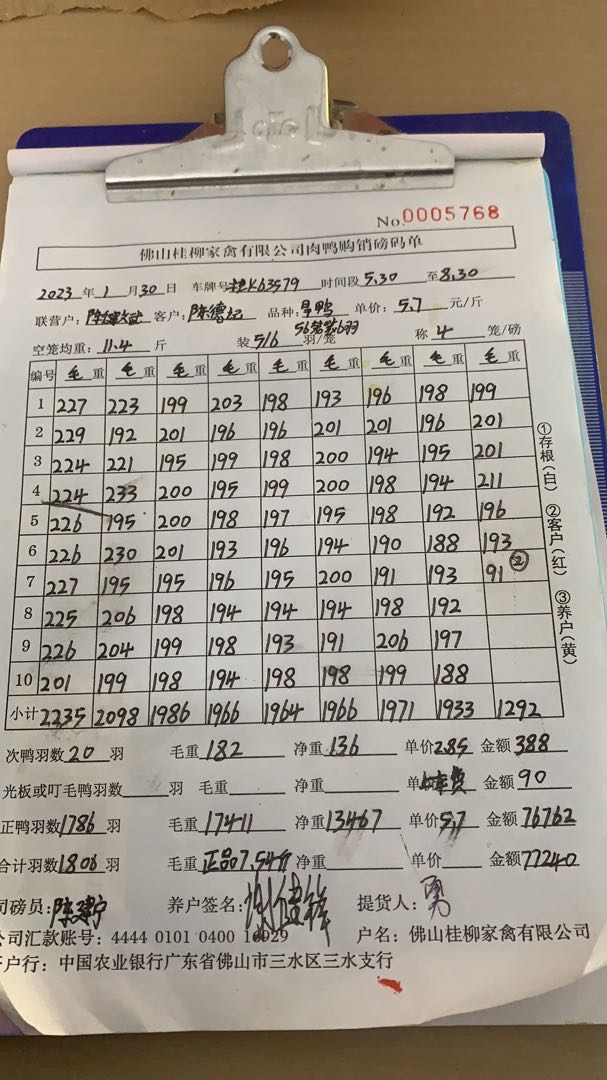 No.0005768
佛山桂柳家禽有限公司肉鸭购销磅码单
2023 年 1 月 30 日 车牌号 K63579 时间段 5.30 至 8.30
联营户: 陈 客户: 陈德记 品种: 旱鸭 单价: 5.7 元/斤
空笼均重: 11.4 斤 装 5/6 羽/笼 56笼 6羽 称 4 笼/磅
编号 毛重 毛重 毛重 毛重 毛重 毛重 毛重 毛重 毛重
1 227 223 199 203 198 193 196 198 199
2 229 192 201 196 196 201 201 196 201
3 224 221 195 199 198 200 194 195 201
4 224 233 200 195 199 200 198 194 211
5 226 195 200 198 197 195 198 192 196
6 226 230 201 193 196 194 190 188 193
7 227 195 195 196 195 200 191 193 91 ②
8 225 206 198 194 194 194 198 192
9 226 204 199 198 193 191 206 197
10 201 199 198 194 198 198 199 188
小计 2235 2098 1986 1966 1964 1966 1971 1933 1292
次鸭羽数 20 羽 毛重 182 净重 136 单价 2.85 金额 388
光板或叮毛鸭羽数 羽 毛重 净重 单 费 金额 90
正鸭羽数 1786 羽 毛重 17411 净重 13467 单价 5.7 金额 76762
合计羽数 1806 羽 毛重 正品7.54斤 净重 单价 金额 77240
司磅员: 陈建宁 养户签名: 提货人: 勇
公司汇款账号: 4444 0101 0400 16029 户名: 佛山桂柳家禽有限公司
户行: 中国农业银行广东省佛山市三水区三水支行
①存根(白) ②客户(红) ③养户(黄)